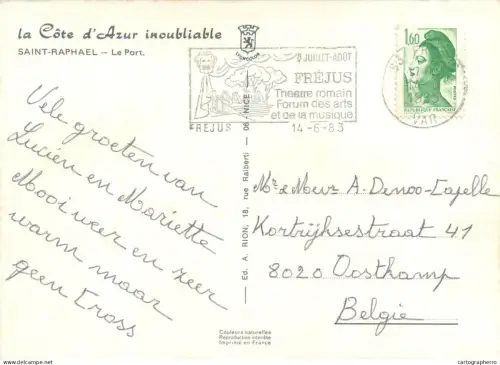 la Côte d'Azur inoubliable
SAINT-RAPHAEL — Le Port.
Vele groeten van
Lucien en Mariette
Mooi weer en zeer
warm maar
geen Cross
JUILLET-AOUT
FRÉJUS
Theatre romain
Forum des arts
et de la musique
FREJUS
14-6-83
1,60
REPUBLIQUE FRANÇAISE
VAR
Ed. A. RION, 18, rue Raiberti — 06-NICE
Mr & Mevr A. Denoo-Capelle
Kortrijksestraat 41
8020 Oostkamp
België
Couleurs naturelles
Reproduction interdite
Imprimé en France
www.delcampe.net
cartographerro